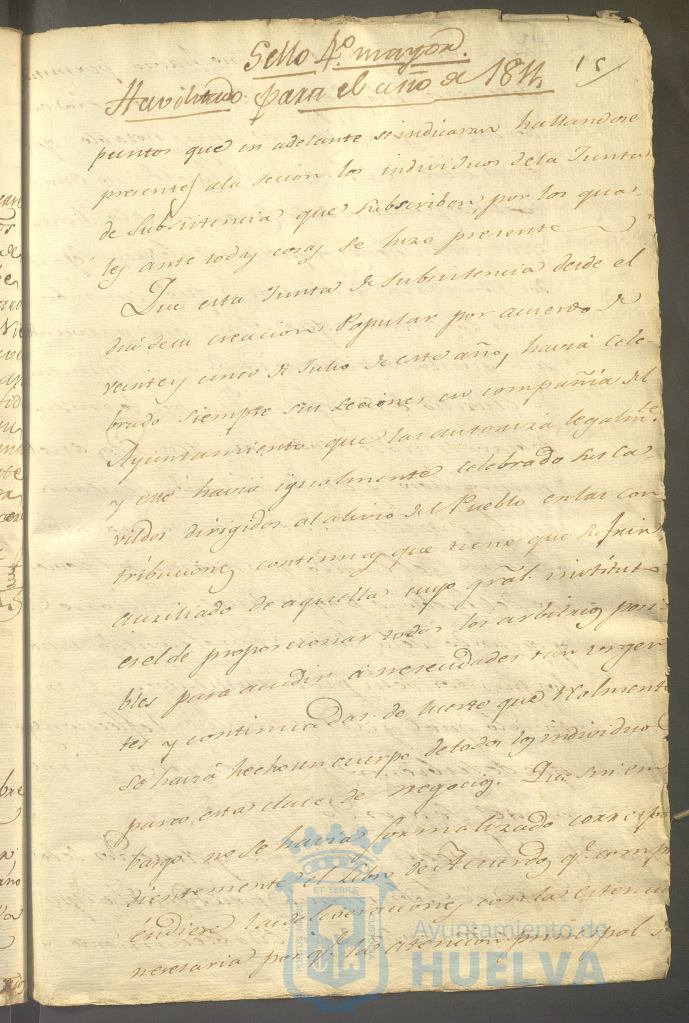 Sello 4.º mayor.
15
Havilitado para el año de 1811
puntos que en adelante se indicaran hallandose
presentes a la secion los individuos de la Junta
de Subsistencia que subscriben, por los qua
les ante todas cosas se hizo presente
Que esta Junta de Subsistencia desde el
dia de su creacion Popular por acuerdo de
veinte y cinco de Julio de este año, havia cele
brado siempre sus seciones en compañia del
Ayuntamiento que las autoriza legalmte.
y este havia igualmente celebrado sus Ca
vildos dirigidos al alivio del Pueblo en las con
tribuciones continuas que tiene que sufrir
auxiliado de aquella cuyo pral. instituto
es el de proporcionar todos los arbitrios posi
bles para acudir á necesidades tan urgen
tes y continuadas de suerte que realmente
se havia hecho un cuerpo de todos los individuos
para esta clase de negocios. Que sin em
bargo no se havia formalizado correspon
dientemente el libro de Acuerdos qe. comp
endiese las deliveraciones con la estencion
necesaria por qe. la atencion principal
ET TERRAE
Ayuntamiento de
HUELVA